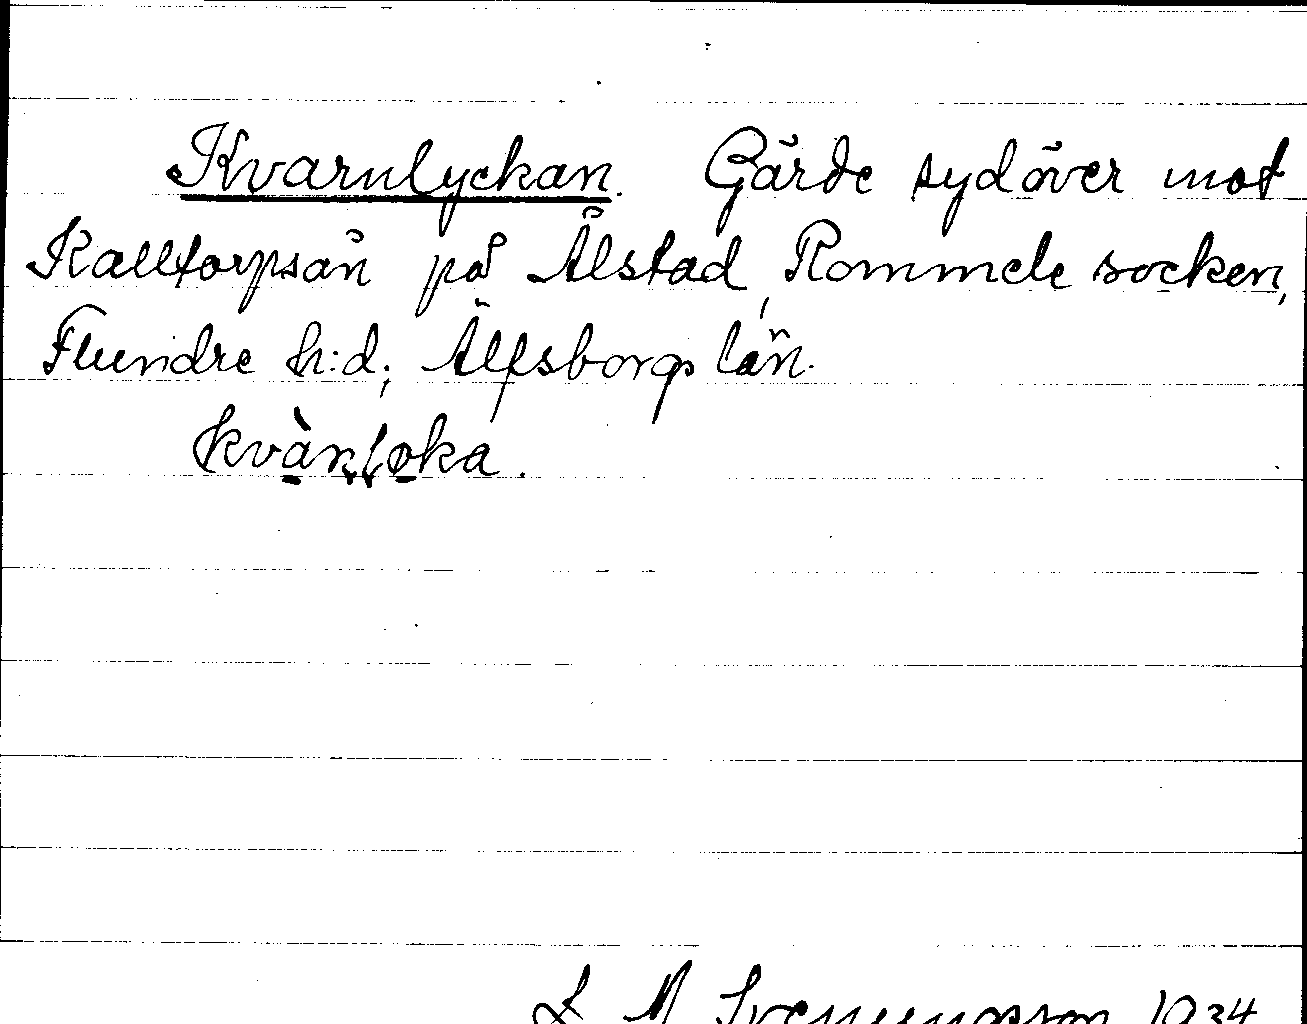 Kvarnlyckan. Gärde sydöver mot
Kalltorpsån på Ålstad, Rommele socken,
Flundre h:d, Älfsborgs län.
kvàɳɭøka.
L M Svenungsson 1934